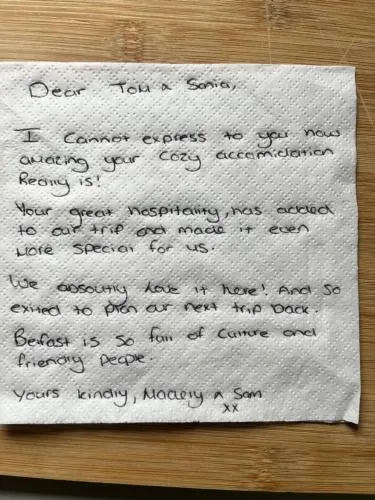 Dear Tom & Sonia,
I Cannot express to you how
amazing your cozy accomidation
Really is!
Your great hospitality, has added
to our trip and made it even
More special for us.
We absoutly love it here! And so
exited to plan our next trip back.
Belfast is so full of Culture and
friendly people.
Yours kindly, & Sam
xx